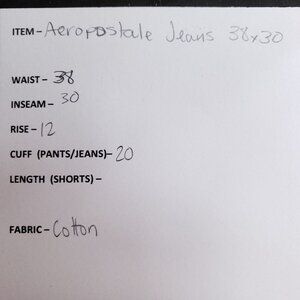 ITEM – Aeropostale Jeans 38x30
WAIST – 38
INSEAM – 30
RISE – 12
CUFF (PANTS/JEANS) – 20
LENGTH (SHORTS) –
FABRIC – Cotton